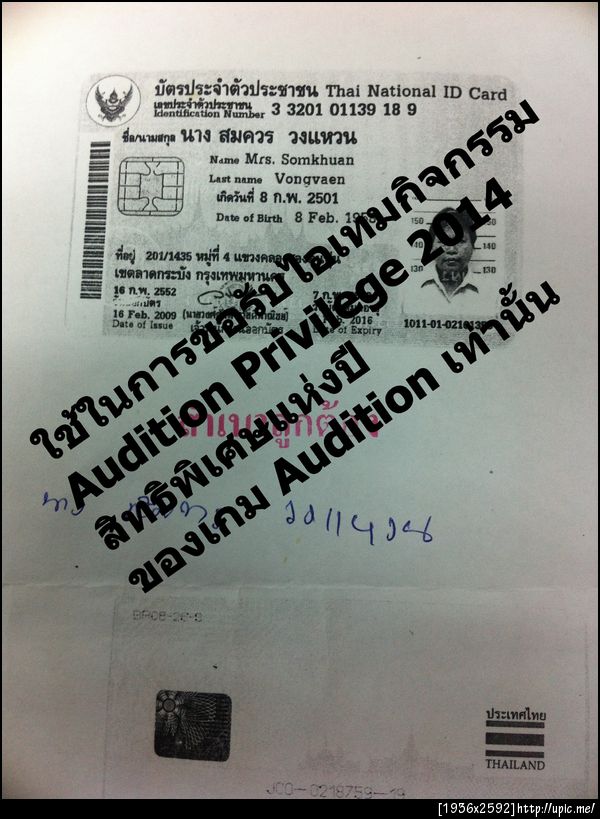 บัตรประจำตัวประชาชน Thai National ID Card
เลขประจำตัวประชาชน
Identification Number 3 3201 01139 18 9
ชื่อ/นามสกุล นาง สมควร วงแหวน
Name Mrs. Somkhuan
Last name Vongvaen
เกิดวันที่ 8 ก.พ. 2501
Date of Birth 8 Feb.
ที่อยู่ 201/1435 หมู่ที่ 4
เขตลาดกระบัง กรุงเทพมหานคร
16 ก.พ. 2552
16 Feb. 2009
Date of Issue
2016
Date of Expiry
150
140 140
130 130
ใช้ในการขอรับไอเทมกิจกรรม
Audition Privilege 2014
สิทธิพิเศษแห่งปี
ของเกม Audition เท่านั้น
สำเนาถูกต้อง
วงแหวน
ประเทศไทย
THAILAND
[1936x2592]http://upic.me/